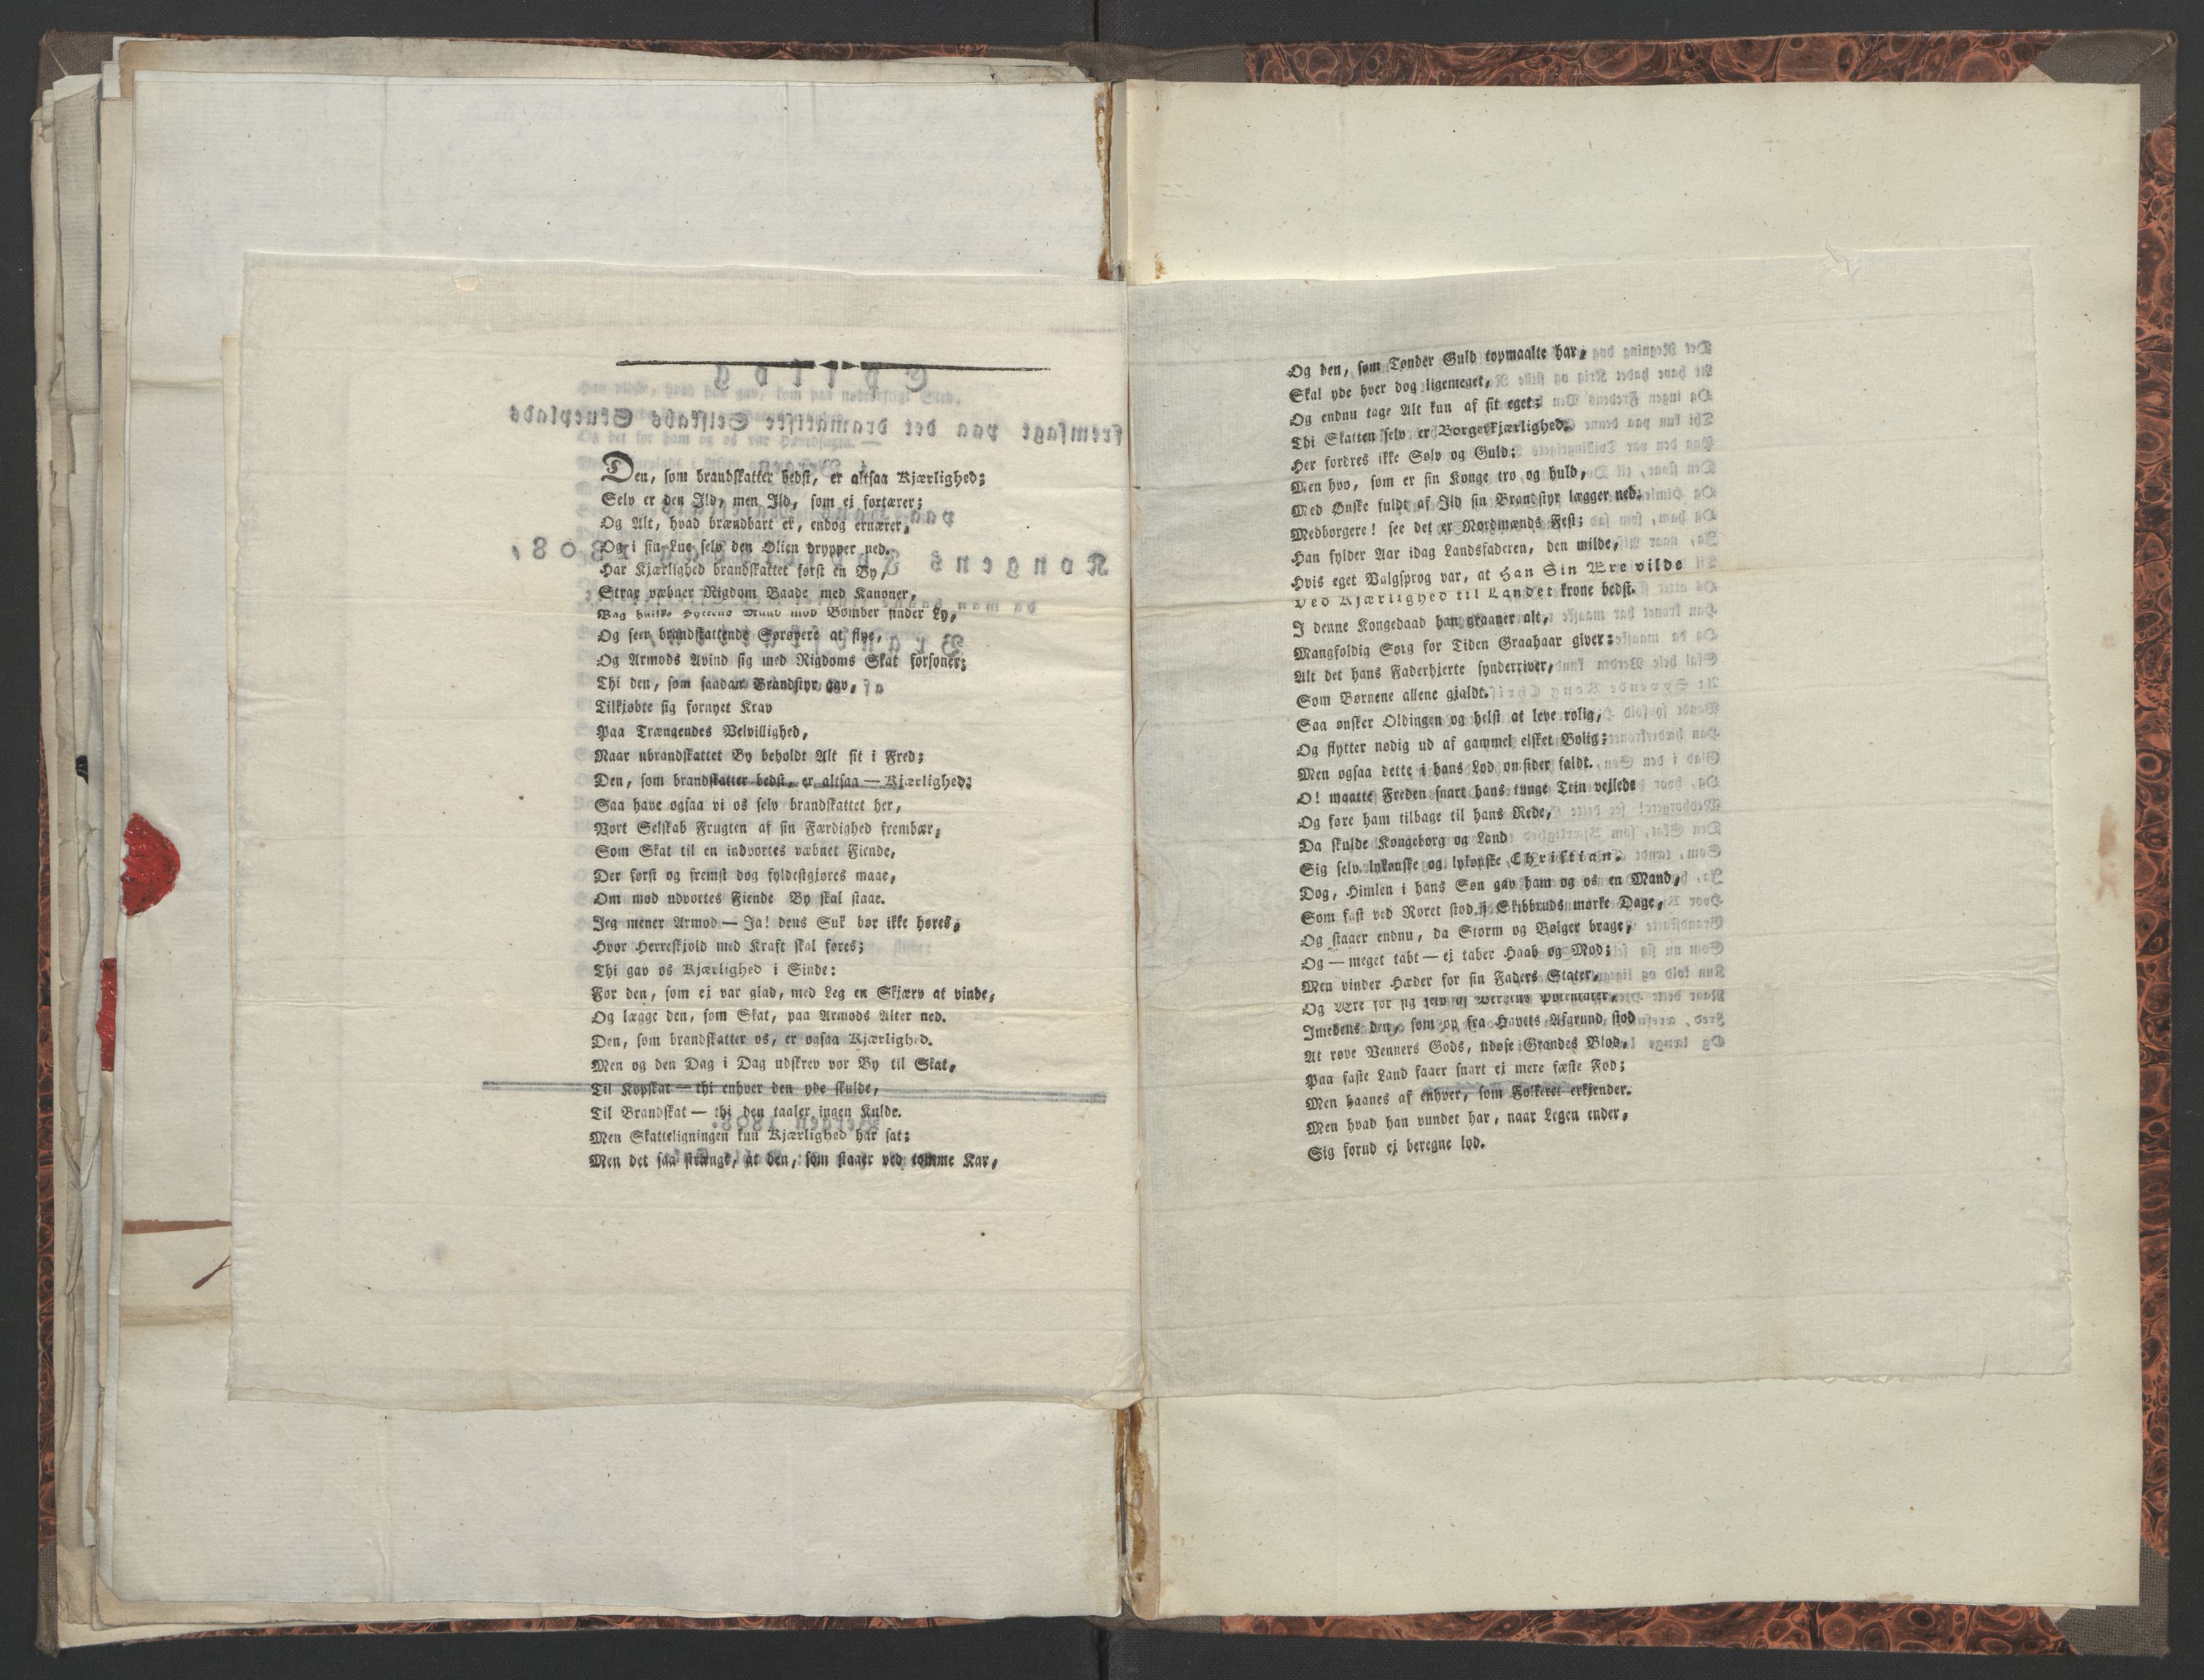 Den, som brandskatter bedst, er altsaa Kjærlighed;
Selv er den Ild, men Ild, som ej fortærer;
Og Alt, hvad brændbart er, endog ernærer,
Og i sin Lue selv den Olien drypper ned.
Har Kjærlighed brandskattet først en By,
Strax væbner Rigdom Baade med Kanoner,
Bag hvilke Hyttens Mand mod Bomber finder Ly,
Og seer brandskattende Sørøvere at flye,
Og Armods Avind sig med Rigdoms Skat forsoner;
Thi den, som saadan Brandstyr gav,
Tilkjøbte sig fornyet Krav
Paa Trængendes Velvillighed,
Naar ubrandskattet By beholdt Alt sit i Fred;
Den, som brandskatter bedst, er altsaa — Kjærlighed;
Saa have ogsaa vi os selv brandskattet her,
Vort Selskab Frugten af sin Færdighed frembær,
Som Skat til en indvortes væbnet Fiende,
Der først og fremst dog fyldestgjøres maae,
Om mod udvortes Fiende By skal staae.
Jeg mener Armod — Ja! dens Suk bør ikke høres,
Hvor Herreskjold med Kraft skal føres;
Thi gav os Kjærlighed i Sinde:
For den, som ej var glad, med Leg en Skjærv at vinde,
Og lægge den, som Skat, paa Armods Alter ned.
Den, som brandskatter os, er ogsaa Kjærlighed.
Men og den Dag i Dag udskrev vor By til Skat,
Til Kopskat — thi enhver den yde skulde,
Til Brandskat — thi den taaler ingen Kulde.
Men Skatteligningen kun Kjærlighed har sat;
Men det saa strængt, at den, som staaer ved tomme Kar,
Og den, som Tønder Guld topmaalte har,
Skal yde hver dog ligemeget,
Og endnu tage Alt kun af sit eget;
Thi Skatten selv er Borgerkjærlighed.
Her fordres ikke Sølv og Guld;
Men hvo, som er sin Konge tro og huld,
Med Ønske fuldt af Ild sin Brandstyr lægger ned.
Medborgere! see det er Nordmænds Fest;
Han fylder Aar idag Landsfaderen, den milde,
Hvis eget Valgsprog var, at Han Sin Ære vilde
Ved Kjærlighed til Landet krone bedst.
I denne Kongedaad han graaner alt,
Mangfoldig Sorg for Tiden Graahaar giver;
Alt det hans Faderhjerte synderriver,
Som Børnene allene gjaldt.
Saa ønsker Oldingen og helst at leve rolig,
Og flytter nødig ud af gammel elsket Bolig;
Men ogsaa dette i hans Lod omsider faldt.
O! maatte Freden snart hans tunge Trin vejlede
Og føre ham tilbage til hans Rede,
Da skulde Kongeborg og Land
Sig selv lykønske og lykønske Christian.
Dog, Himlen i hans Søn gav ham og os en Mand,
Som fast ved Roret stod i Skibbruds mørke Dage,
Og staaer endnu, da Storm og Bølger brage,
Og — meget tabt — ej taber Haab og Mod;
Men vinder Hæder for sin Faders Stater,
Og Ære for sig selv af Verdens Potentater,
Imedens den, som op fra Havets Afgrund stod
At røve Venners Gods, udøse Grandes Blod,
Paa faste Land faaer snart ej mere fæste Fod;
Men haanes af enhver, som Folkeret erkjender.
Men hvad han vundet har, naar Legen ender,
Sig forud ej beregne lod.